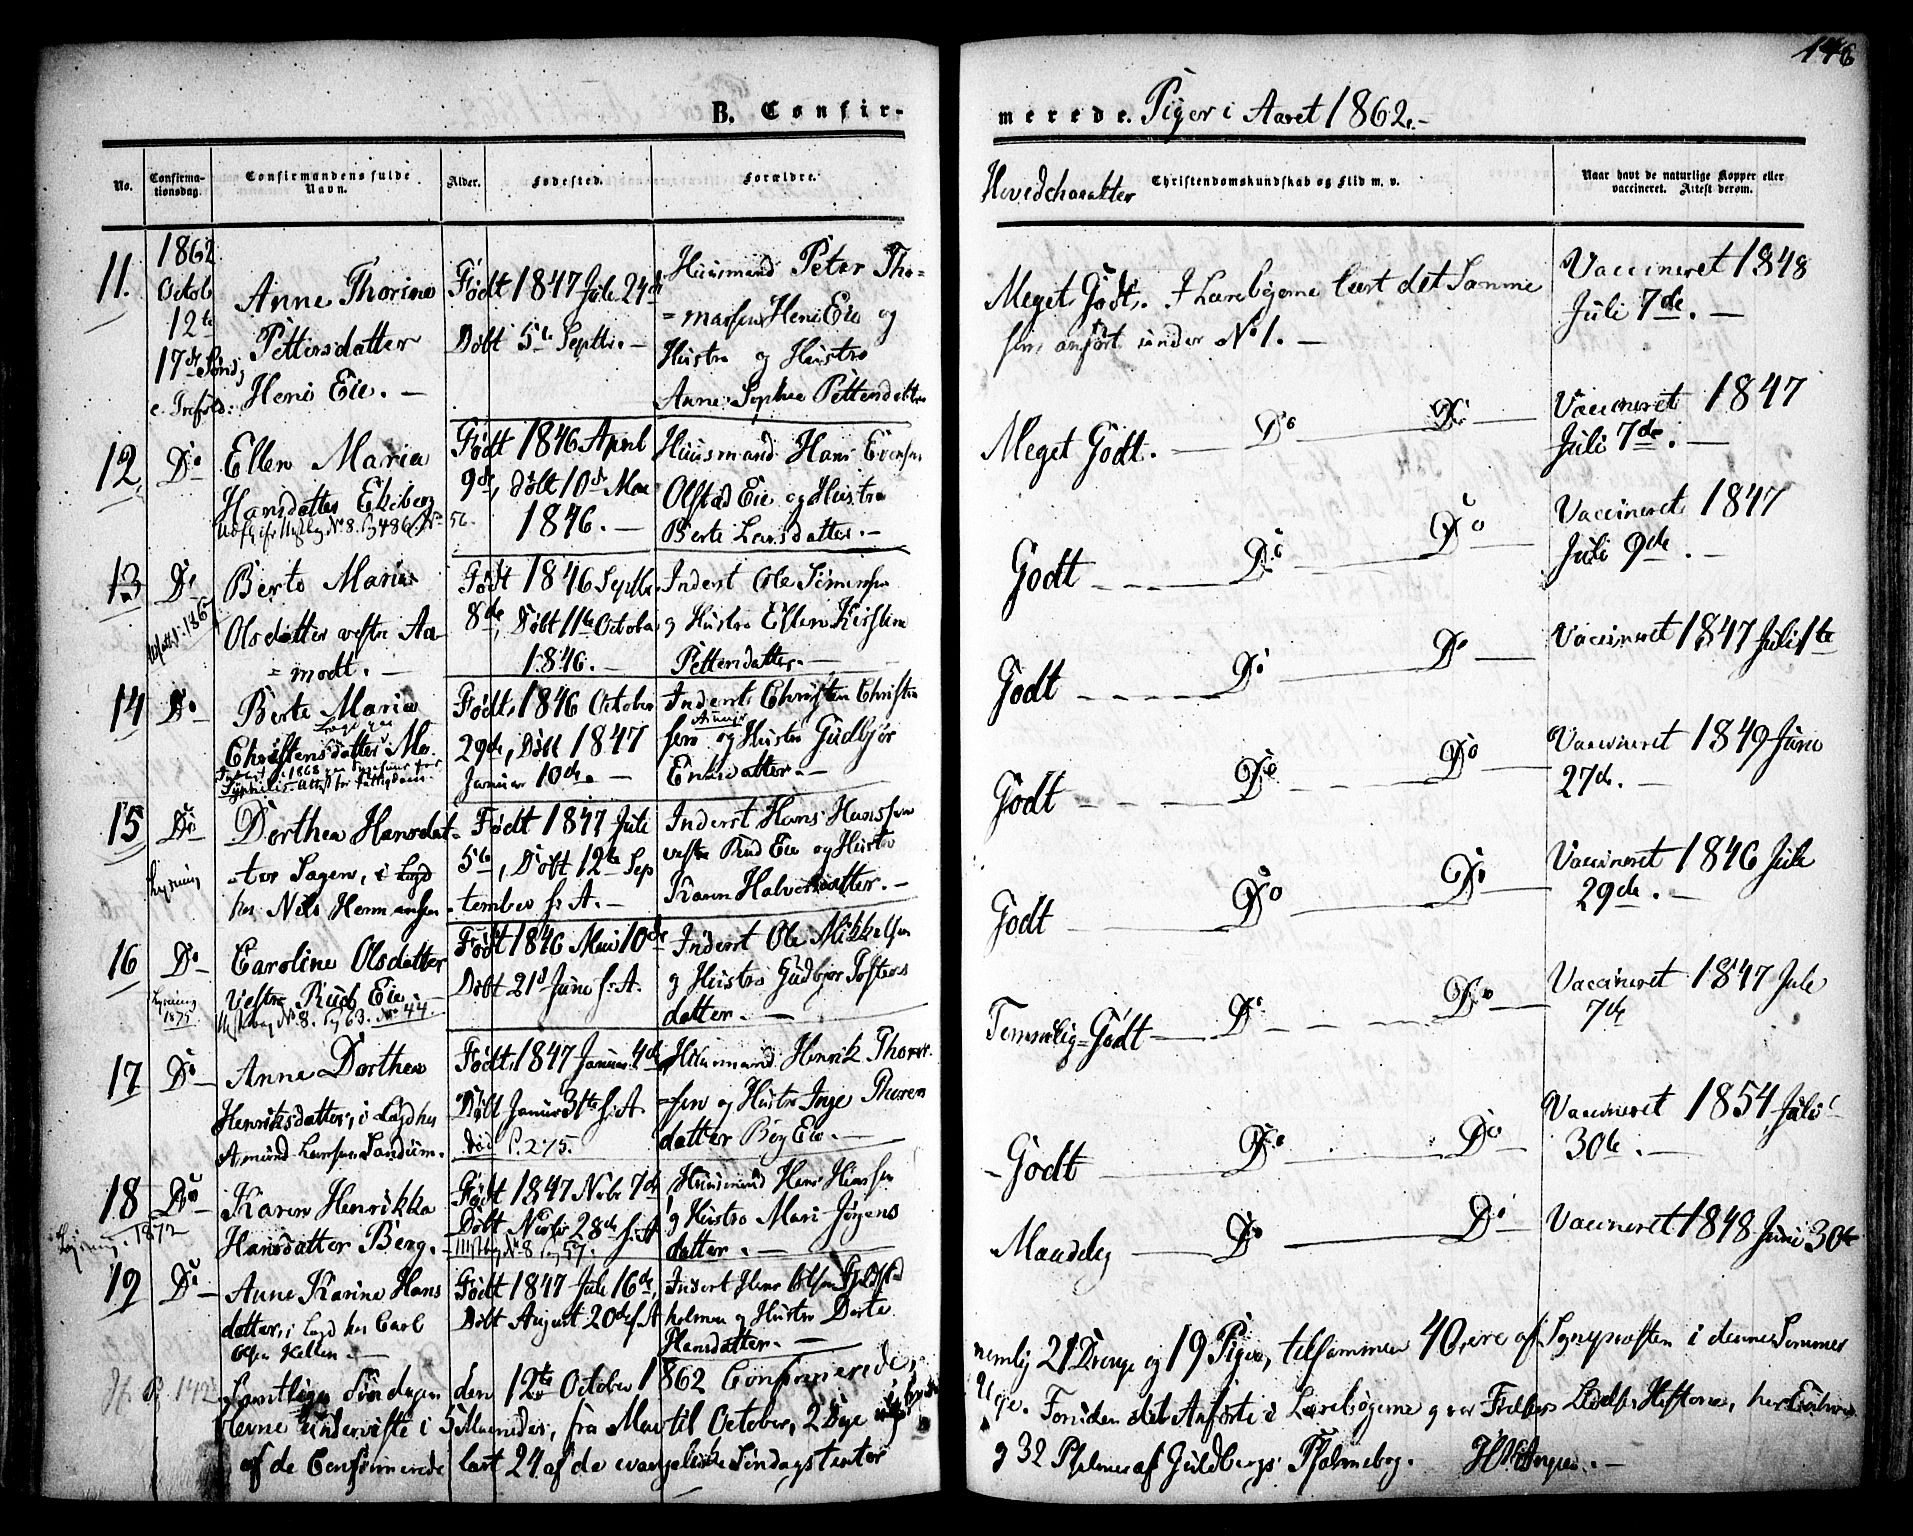 146
B. Confirmerede. Piger i Aaret 1862.-
No.
Confirmationsdag.
Confirmandens fulde Navn.
Alder.
Fødested.
Forældre.
Hovedcharakter
Christendomskundskab og Flid m. v.
Naar havt de naturlige Kopper eller vaccineret. Attest derom.
11.
1862
Octob
12te
17de Sønd
e. Trefold:
Anne Thorine
Pettersdatter
Heni Eie. —
Født 1847 Juli 24de
Døbt 5te Septbr. —
Huusmand Peter Tho=
=massen Heni Eie og
Hustro og Hustro
Anne Sophie Pettersdatter
Meget Godt. I Lærebøgerne læst det Samme
som anført under No 1. —
Vaccineret 1848
Juli 7de. —
12
Do
Ellen Maria
Hansdatter Ekeberg
Født 1846 April
9de, døbt 10de Mai
1846. —
Huusmand Hans Evensen
Olstad Eie og Hustro
Berte Larsdatter. —
Meget Godt. — Do — Do —
Vaccineret 1847
Juli 7de. —
13
Do
Berte Maria
Olsdatter vestre Aa-
=modt. —
Født 1846 Septbr
8de, Døbt 11te October
1846. —
Inderst Ole Simensen
og Hustro Ellen Kirstine
Pettersdatter. —
Godt — Do — Do —
Vaccineret 1847
Juli 9de. —
14
Do
Berte Maria
Christensdatter Mo.
Født 1846 October
29de, Døbt 1847
Januar 10de. —
Inderst Christen Christen
sen og Hustro Gudbjør
Godt — Do — Do —
Vaccineret 1847 Juli 1te
15
Do
Lysning
Dorthea Hansdat-
-ter Sagen, i Lægd
hos Nils Hermansen.
Født 1847 Juli
5te, Døbt 12te Sep
tember s. A. —
Inderst Hans Hanssen
vestre Rud Eie og Hustro
Karen Halvorsdatter. —
Godt — Do — Do —
Vaccineret 1849 Juni
27de. —
16
Do
Lysning
1875
Caroline Olsdatter
Vestre Rud Eie
No 8. Pag 63. No 44.
Født 1846 Mai 10de
Døbt 21de Juni s. A.
Inderst Ole Mikkelsen
og Hustro Gudbjør Tostens
datter. —
Godt — Do — Do —
Vaccineret 1846 Juli
29de. —
17
Do
Anne Dorthea
Henriksdatter, i Lægd hos
Amund Larsen Sandum.
Født 1847 Januar 4de
Døbt Januar 31te s. A.
død P. 275.
Huusmand Henrik Thor
=sen og Hustro Inge Thoren
datter Berg Eie. —
Temmelig-Godt — Do — Do
Vaccineret 1847 Juli
7de
18
Do
Lysning. 1872
Karen Henrikka
Hansdatter Berg.
Født 1847 Novbr 7de
Døbt Novbr 28de s. A.
No 8 Pag 57.
Huusmand Hans Hanssen
og Hustro Mari Jørgens
datter. —
Godt — Do — Do —
Vaccineret 1854 Juli
30te. —
19
Do
Anne Karine Hans
datter, i Lægd hos Carl
Olsen Kollen. —
Født 1847 Juli 16de,
Døbt August 20de s. A
Inderst Hans Olsen
holmen og Hustro Dorte
Hansdatter. —
Maadelig — Do — Do —
Vaccineret 1848 Juni 30te
Samtlige Søndagen den 12te October 1862 Confirmerede,
nemlig 21 Drenge og 19 Piger, tilsammen 40, ere af Sognepræsten i denne Sommer
blevne underviste i 5 Maaneder, fra Mai til October, 2 Dage
Uge. Foruden det Anførte i Lærebøgerne
af de Confirmerede læst 24 af de evangeliske Søndagstexter
og 32 Psalmer af Guldbergs Psalmebog.